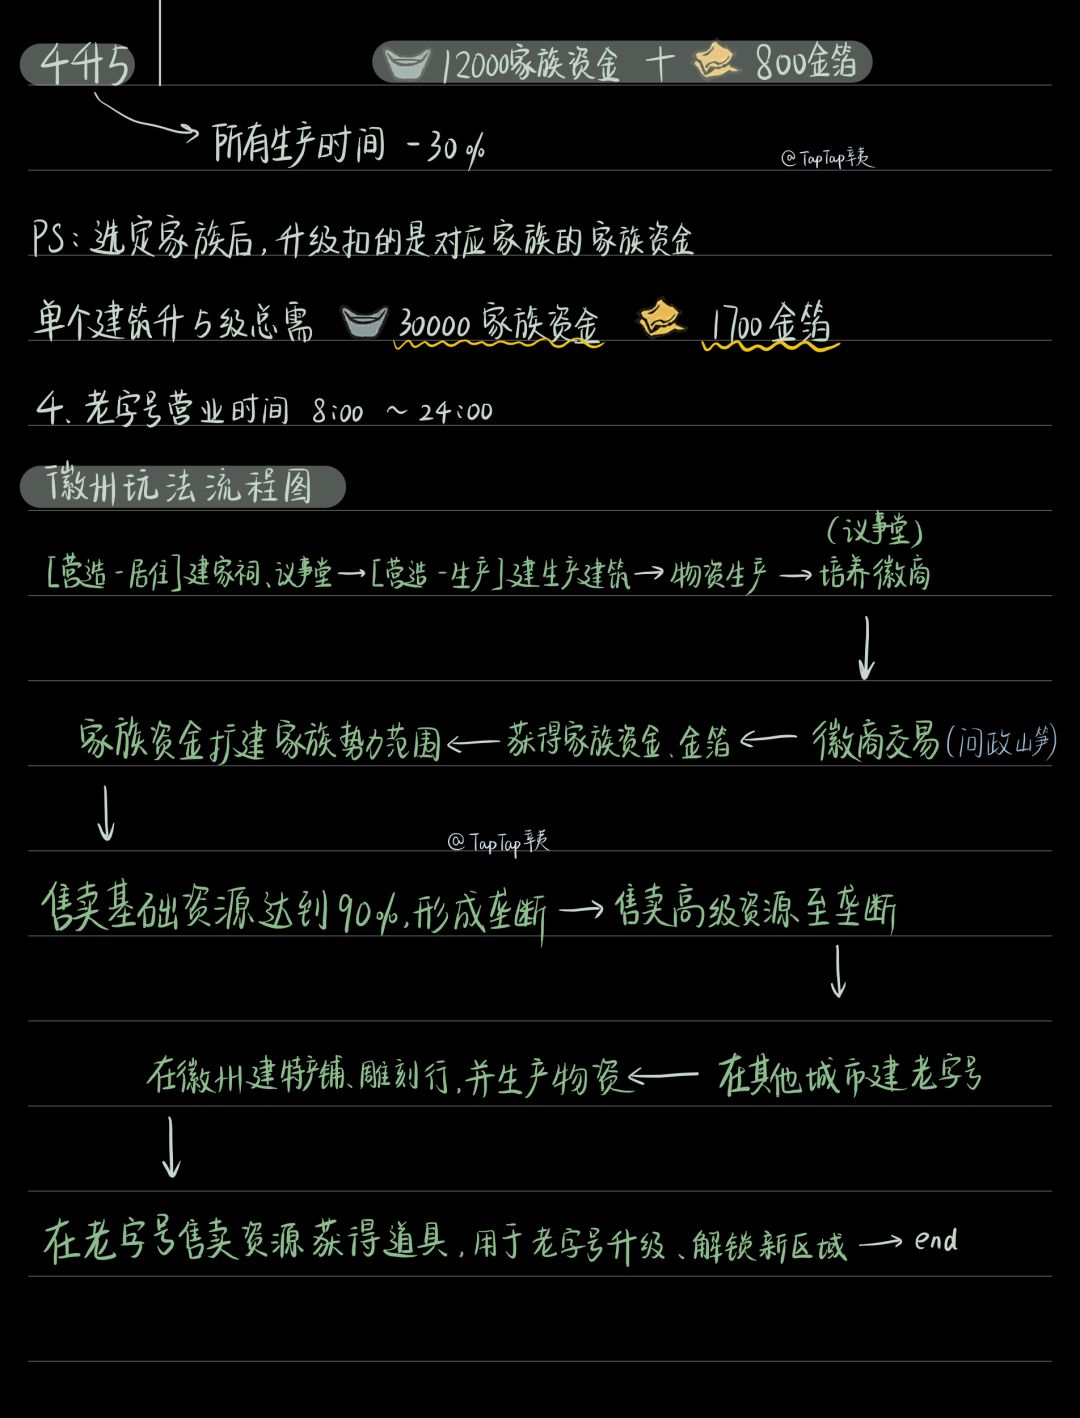 4升5 12000家族资金 + 800金箔
所有生产时间 -30%
@TapTap辛夷
PS：选定家族后，升级扣的是对应家族的家族资金
单个建筑升5级总需 30000家族资金 1700金箔
4、老字号营业时间 8:00 ~ 24:00
徽州玩法流程图
(议事堂)
[营造-居住]建家祠、议事堂→[营造-生产]建生产建筑→物资生产→培养徽商
↓
家族资金扩建家族势力范围←获得家族资金、金箔←徽商交易(问政山笋)
↓
@TapTap辛夷
售卖基础资源达到90%，形成垄断→售卖高级资源至垄断
↓
在徽州建特产铺、雕刻行，并生产物资←在其他城市建老字号
↓
在老字号售卖资源获得道具，用于老字号升级、解锁新区域→end